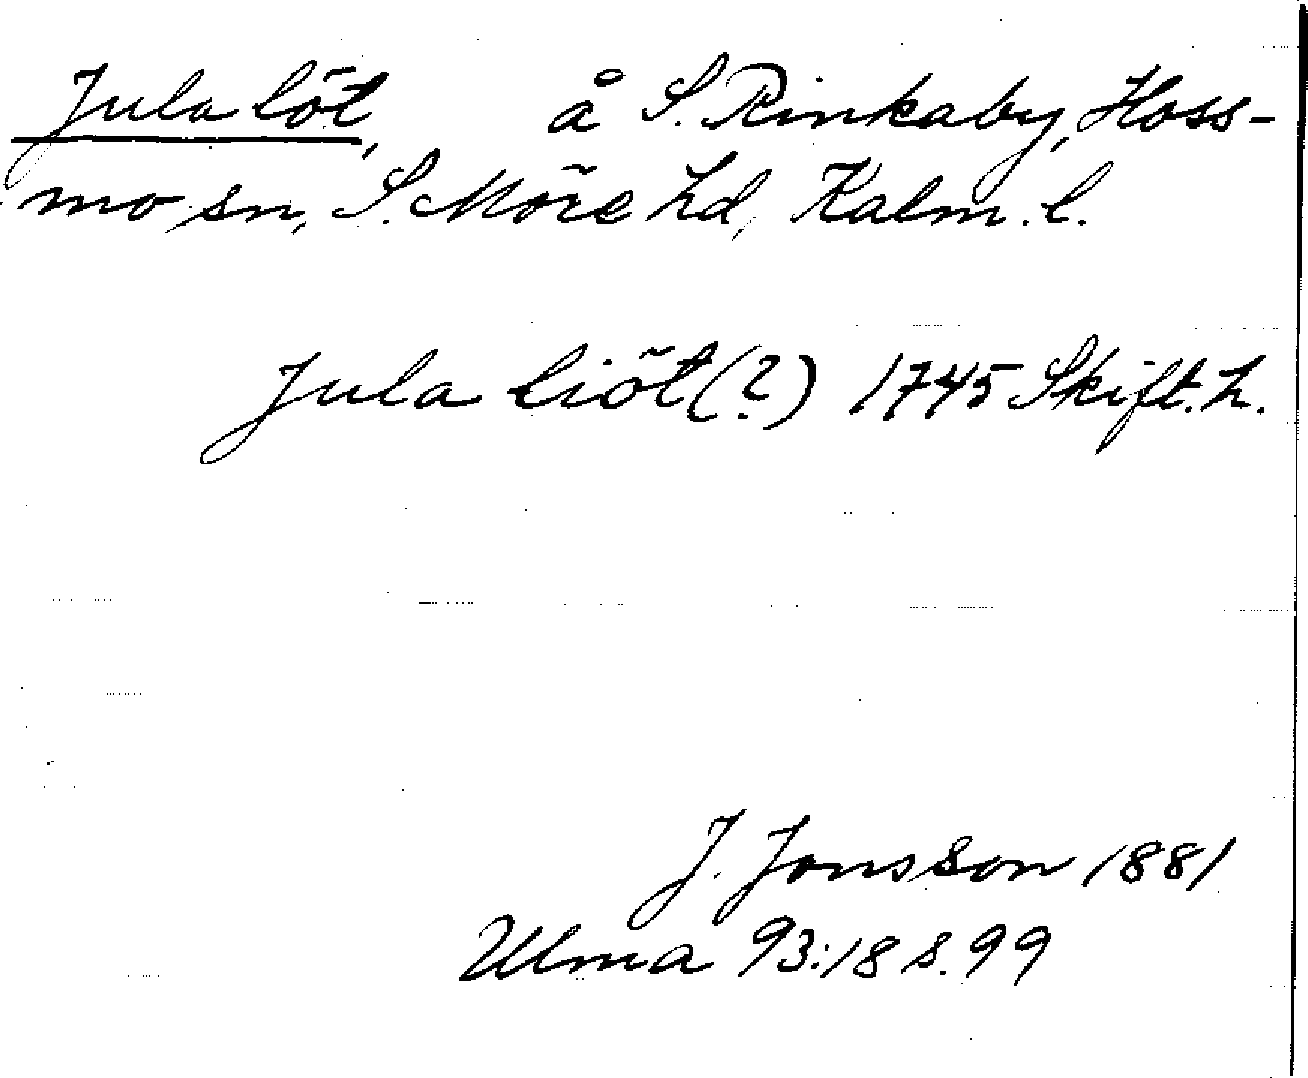 Jula löt, å S. Rinkaby, Hoss-
mo sn, S. Möre hd, Kalm. l.
Jula liöt (?) 1745 Skift. h.
J. Jonsson 1881
Ulma 93:18 s. 99